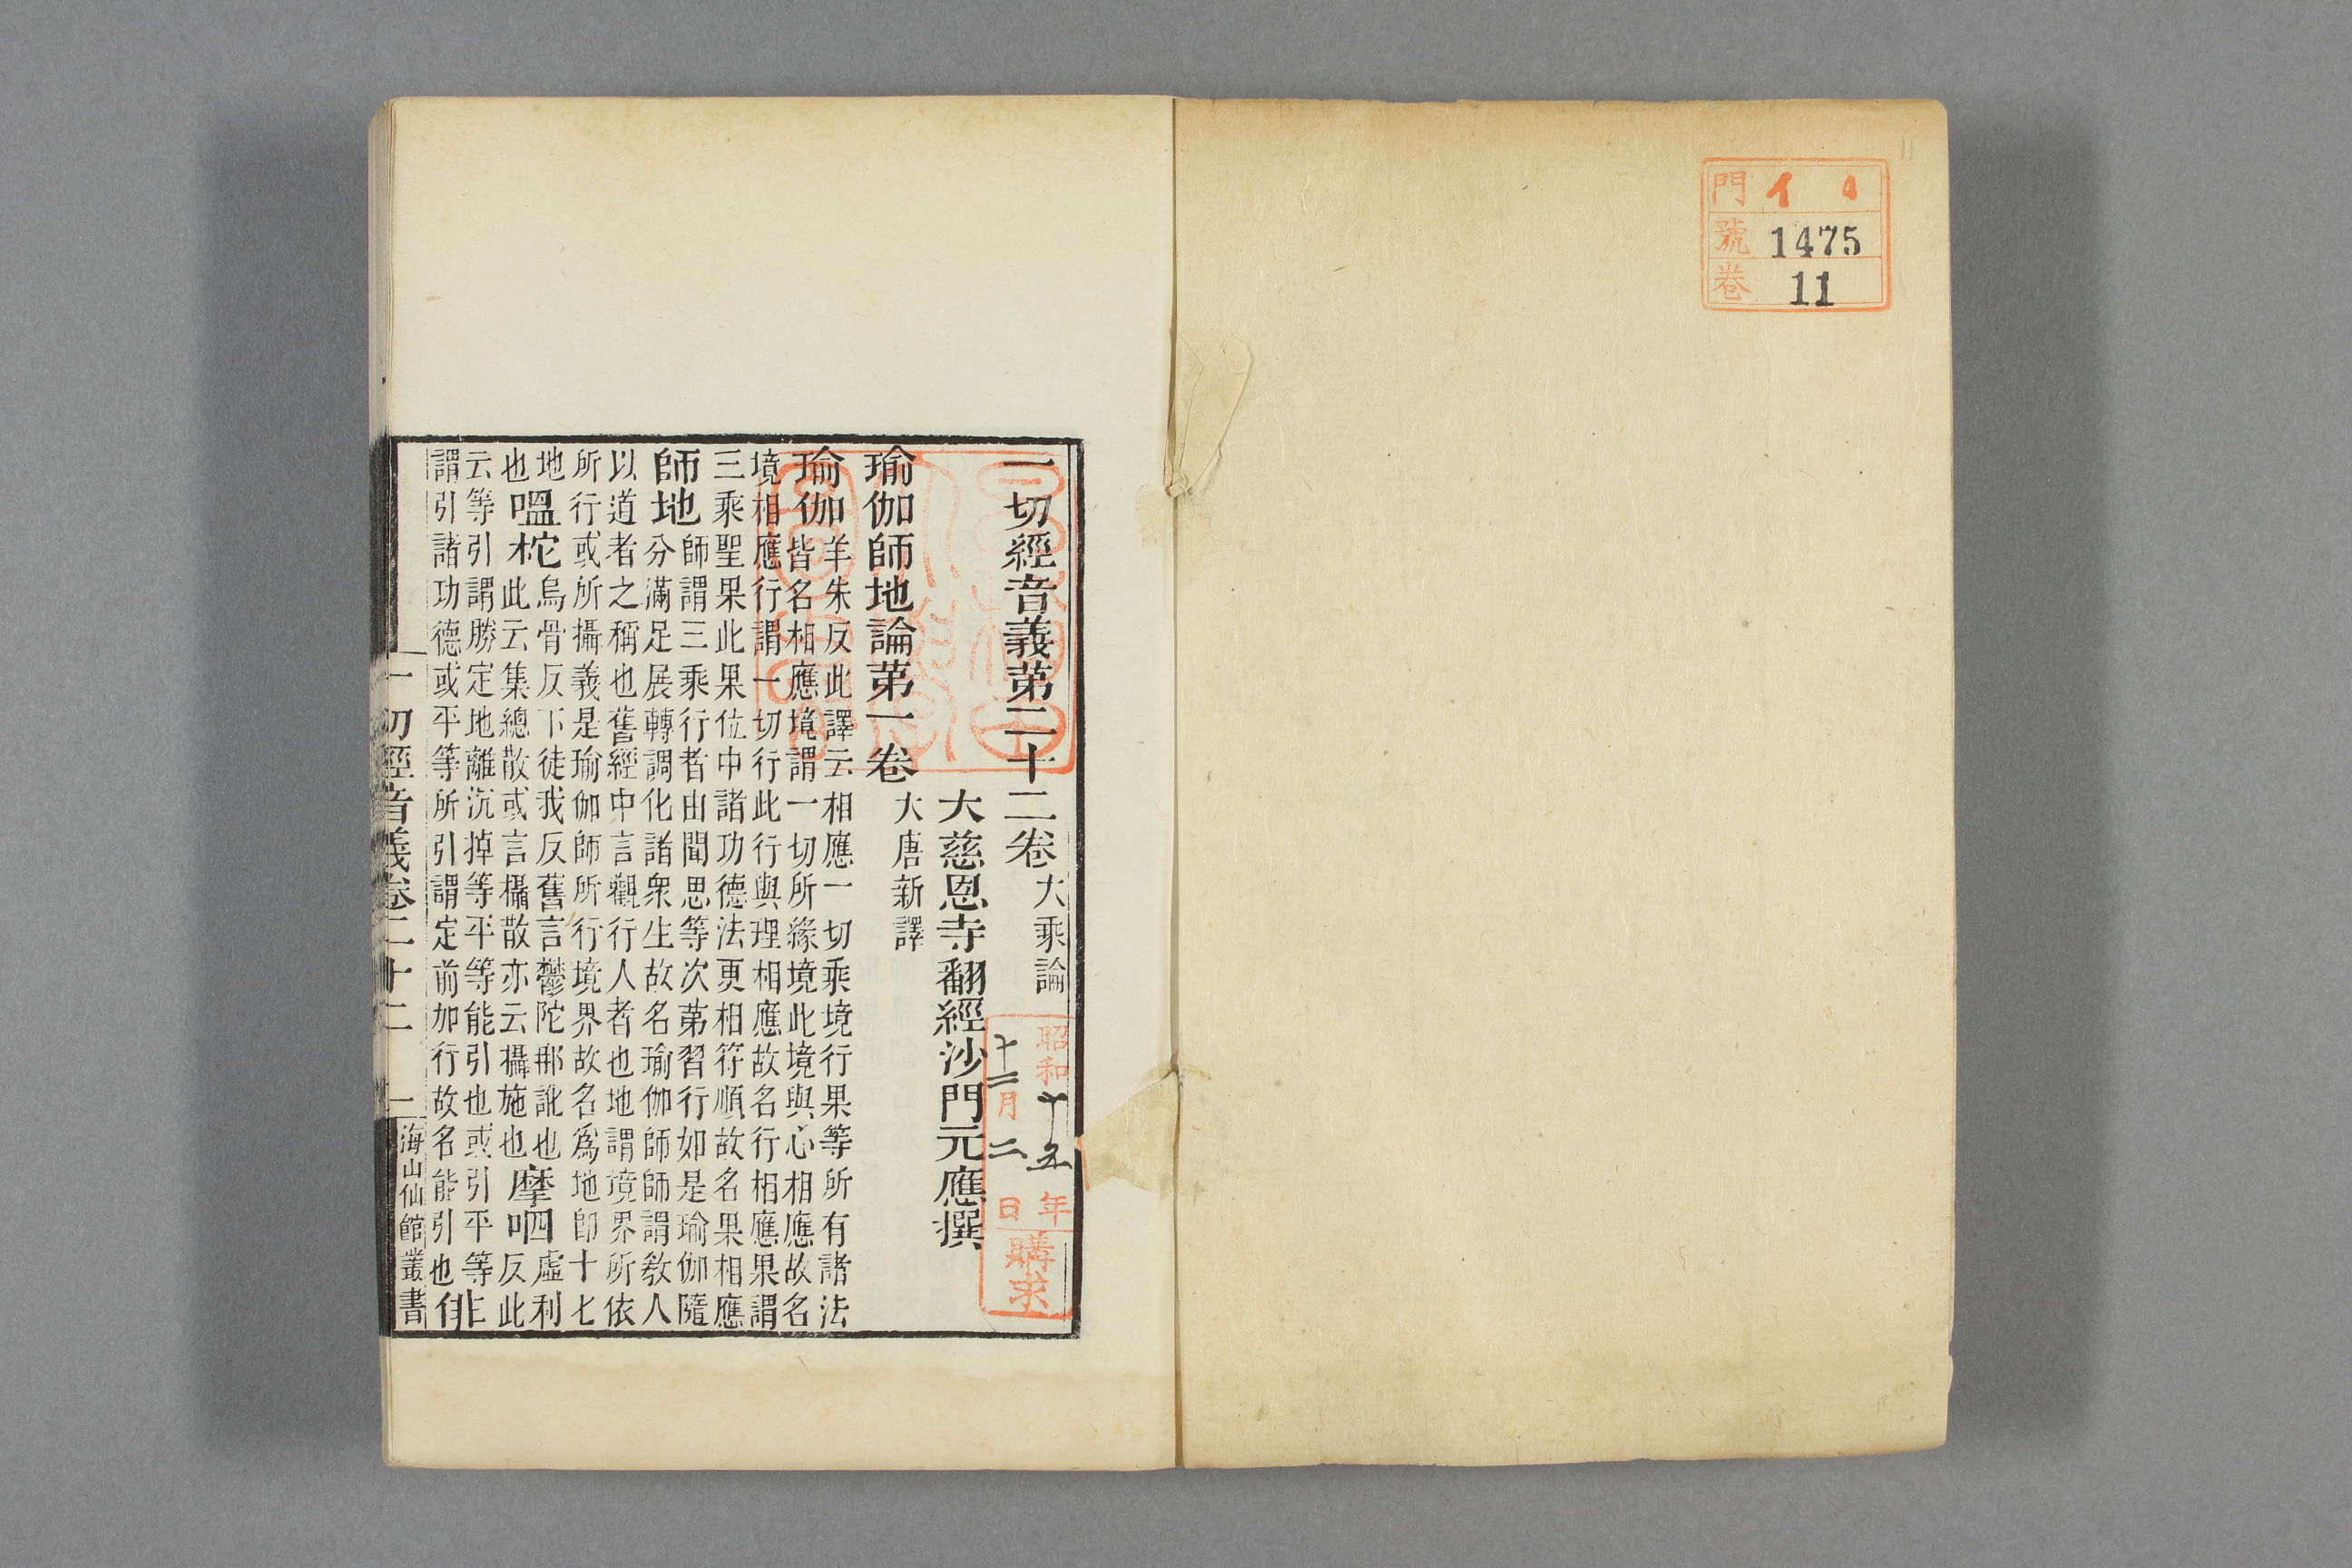 門 イ
號 1475
卷 11
一切經音義第二十二卷 大乘論
大慈恩寺翻經沙門元應撰
瑜伽師地論第一卷 大唐新譯
瑜伽 羊朱反此譯云相應一切乘境行果等所有諸法
皆名相應境謂一切所緣境此境與心相應故名
境相應行謂一切行此行與理相應故名行相應果謂
三乘聖果此果位中諸功德法更相符順故名果相應
師地 師謂三乘行者由聞思等次第習行如是瑜伽隨
分滿足展轉調化諸衆生故名瑜伽師師謂教人
以道者之稱也舊經中言觀行人者也地謂境界所依
所行或所攝義是瑜伽師所行境界故名爲地卽十七
地也 嗢柁 烏骨反下徒我反舊言鬱陀那訛也
此云集總散或言攝散亦云攝施也 摩呬 虛利反此
云等引謂勝定地離沉掉等平等能引也或引平等
謂引諸功德或平等所引謂定前加行故名能引也 俳
一切經音義卷二十二 一 海山仙館叢書
昭和十五年
十二月二日
購求